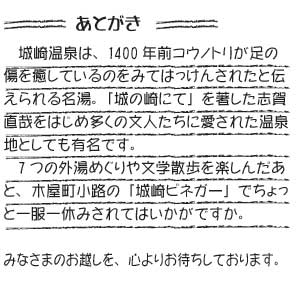 あとがき
城崎温泉は、1400年前コウノトリが足の
傷を癒しているのをみてはっけんされたと伝
えられる名湯。「城の崎にて」を著した志賀
直哉をはじめ多くの文人たちに愛された温泉
地としても有名です。
7つの外湯めぐりや文学散歩を楽しんだあ
と、木屋町小路の「城崎ビネガー」でちょっ
と一服一休みされてはいかがですか。
みなさまのお越しを、心よりお待ちしております。